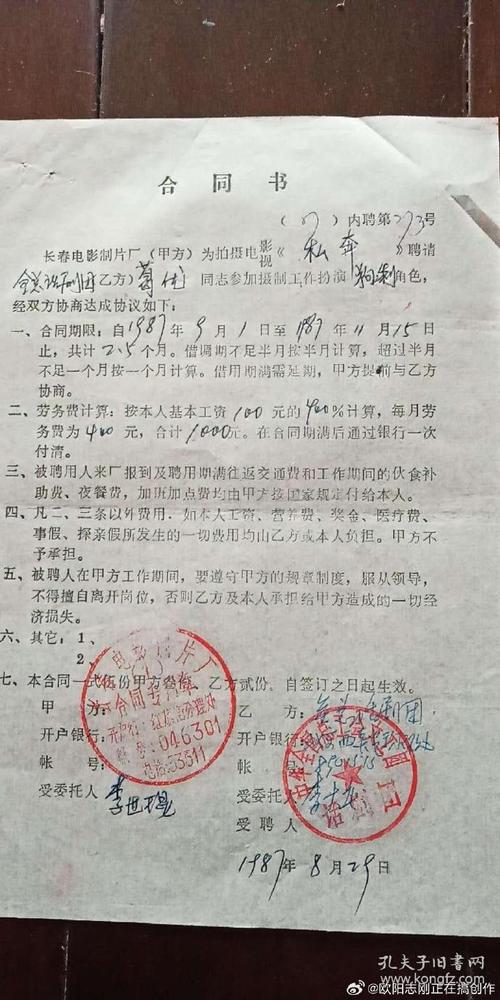 合同书
（87）内聘第273号
长春电影制片厂（甲方）为拍摄电影视《私奔》聘请
全总话剧团（乙方）葛优同志参加摄制工作扮演角色，
经双方协商达成协议如下：
一、合同期限：自1987年9月1日至1987年11月15日
止，共计2.5个月。借调期不足半月按半月计算，超过半月
不足一个月按一个月计算。借用期满需延期，甲方提前与乙方
协商。
二、劳务费计算：按本人基本工资100元的400%计算，每月劳
务费为400元，合计1000元。在合同期满后通过银行一次
付清。
三、被聘用人来厂报到及聘用期满往返交通费和工作期间的伙食补
助费、夜餐费，加班加点费均由甲方按国家规定付给本人。
四、凡二、三条以外费用．如本人工资、营养费、奖金、医疗费、
事假、探亲假所发生的一切费用均由乙方或本人负担。甲方不
予承担。
五、被聘人在甲方工作期间，要遵守甲方的规章制度，服从领导，
不得擅自离开岗位，否则乙方及本人承担给甲方造成的一切经
济损失。
六、其它：1、
2、
七、本合同一式伍份甲方叁份，乙方贰份，自签订之日起生效。
甲方：
开户银行：
帐号：
受委托人
电影制片厂
合同专用章
开户行：红旗街办理处
帐号：046301
电话：53311
乙方：全总话剧团
开户银行：
帐号：
受委托人
受聘人
中华全国总工会
话剧团
1987年8月29日
孔夫子旧书网
www.kongfz.com
@欧阳志刚正在搞创作